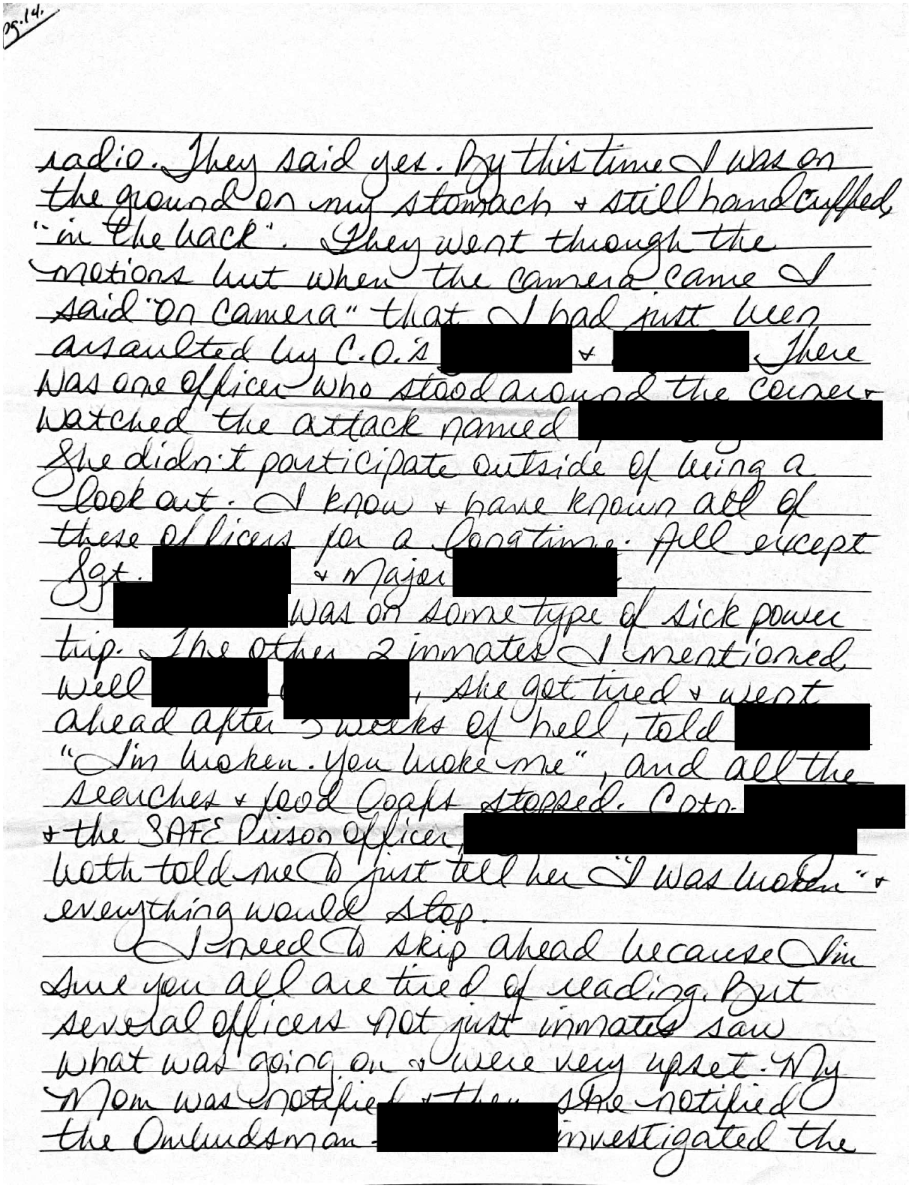 pg.14.
radio. They said yes. By this time I was on
the ground on my stomach & still handcuffed
"in the back". They went through the
motions but when the camera came I
said "on camera" that I had just been
assaulted by C.O.'s & . There
was one officer who stood around the corner &
watched the attack named
She didn't participate outside of being a
look out. I know & have known all of
these officers for a longtime. All except
Sgt. & Major .
was on some type of sick power
trip. The other 2 inmates I mentioned
well , she got tired & went
ahead after 3 weeks of hell, told
"I'm broken. You broke me", and all the
searches & food loafs stopped. Capt.
& the SAFE Prison Officer,
both told me to just tell her "I was broken" &
everything would stop.
I need to skip ahead because I'm
sure you all are tired of reading. But
several officers not just inmates saw
what was going on & were very upset. My
Mom was notified & then she notified
the Ombudsman - investigated the